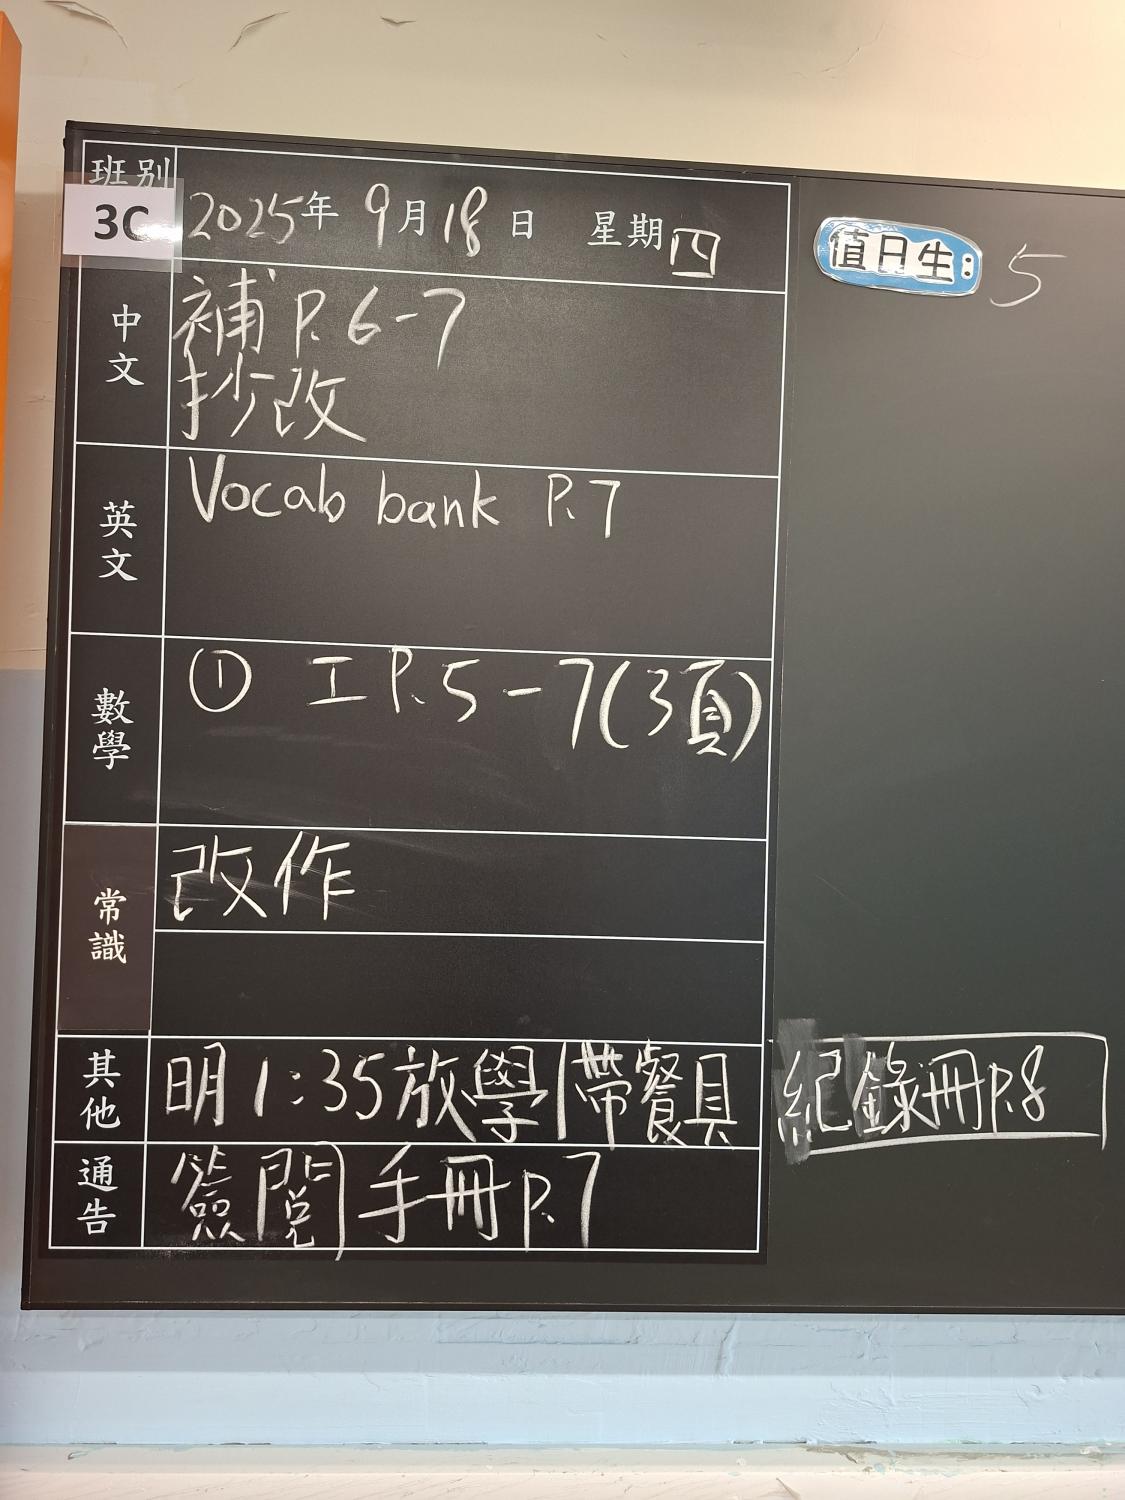 班別
3C
2025年 9月18日 星期四
值日生: 5
中文
補 P. 6-7
抄改
英文
Vocab bank P. 7
數學
① 工 P. 5-7(3頁)
常識
改作
其他
明1:35放學|帶餐具
紀錄冊P.8
通告
簽閱手冊P.7